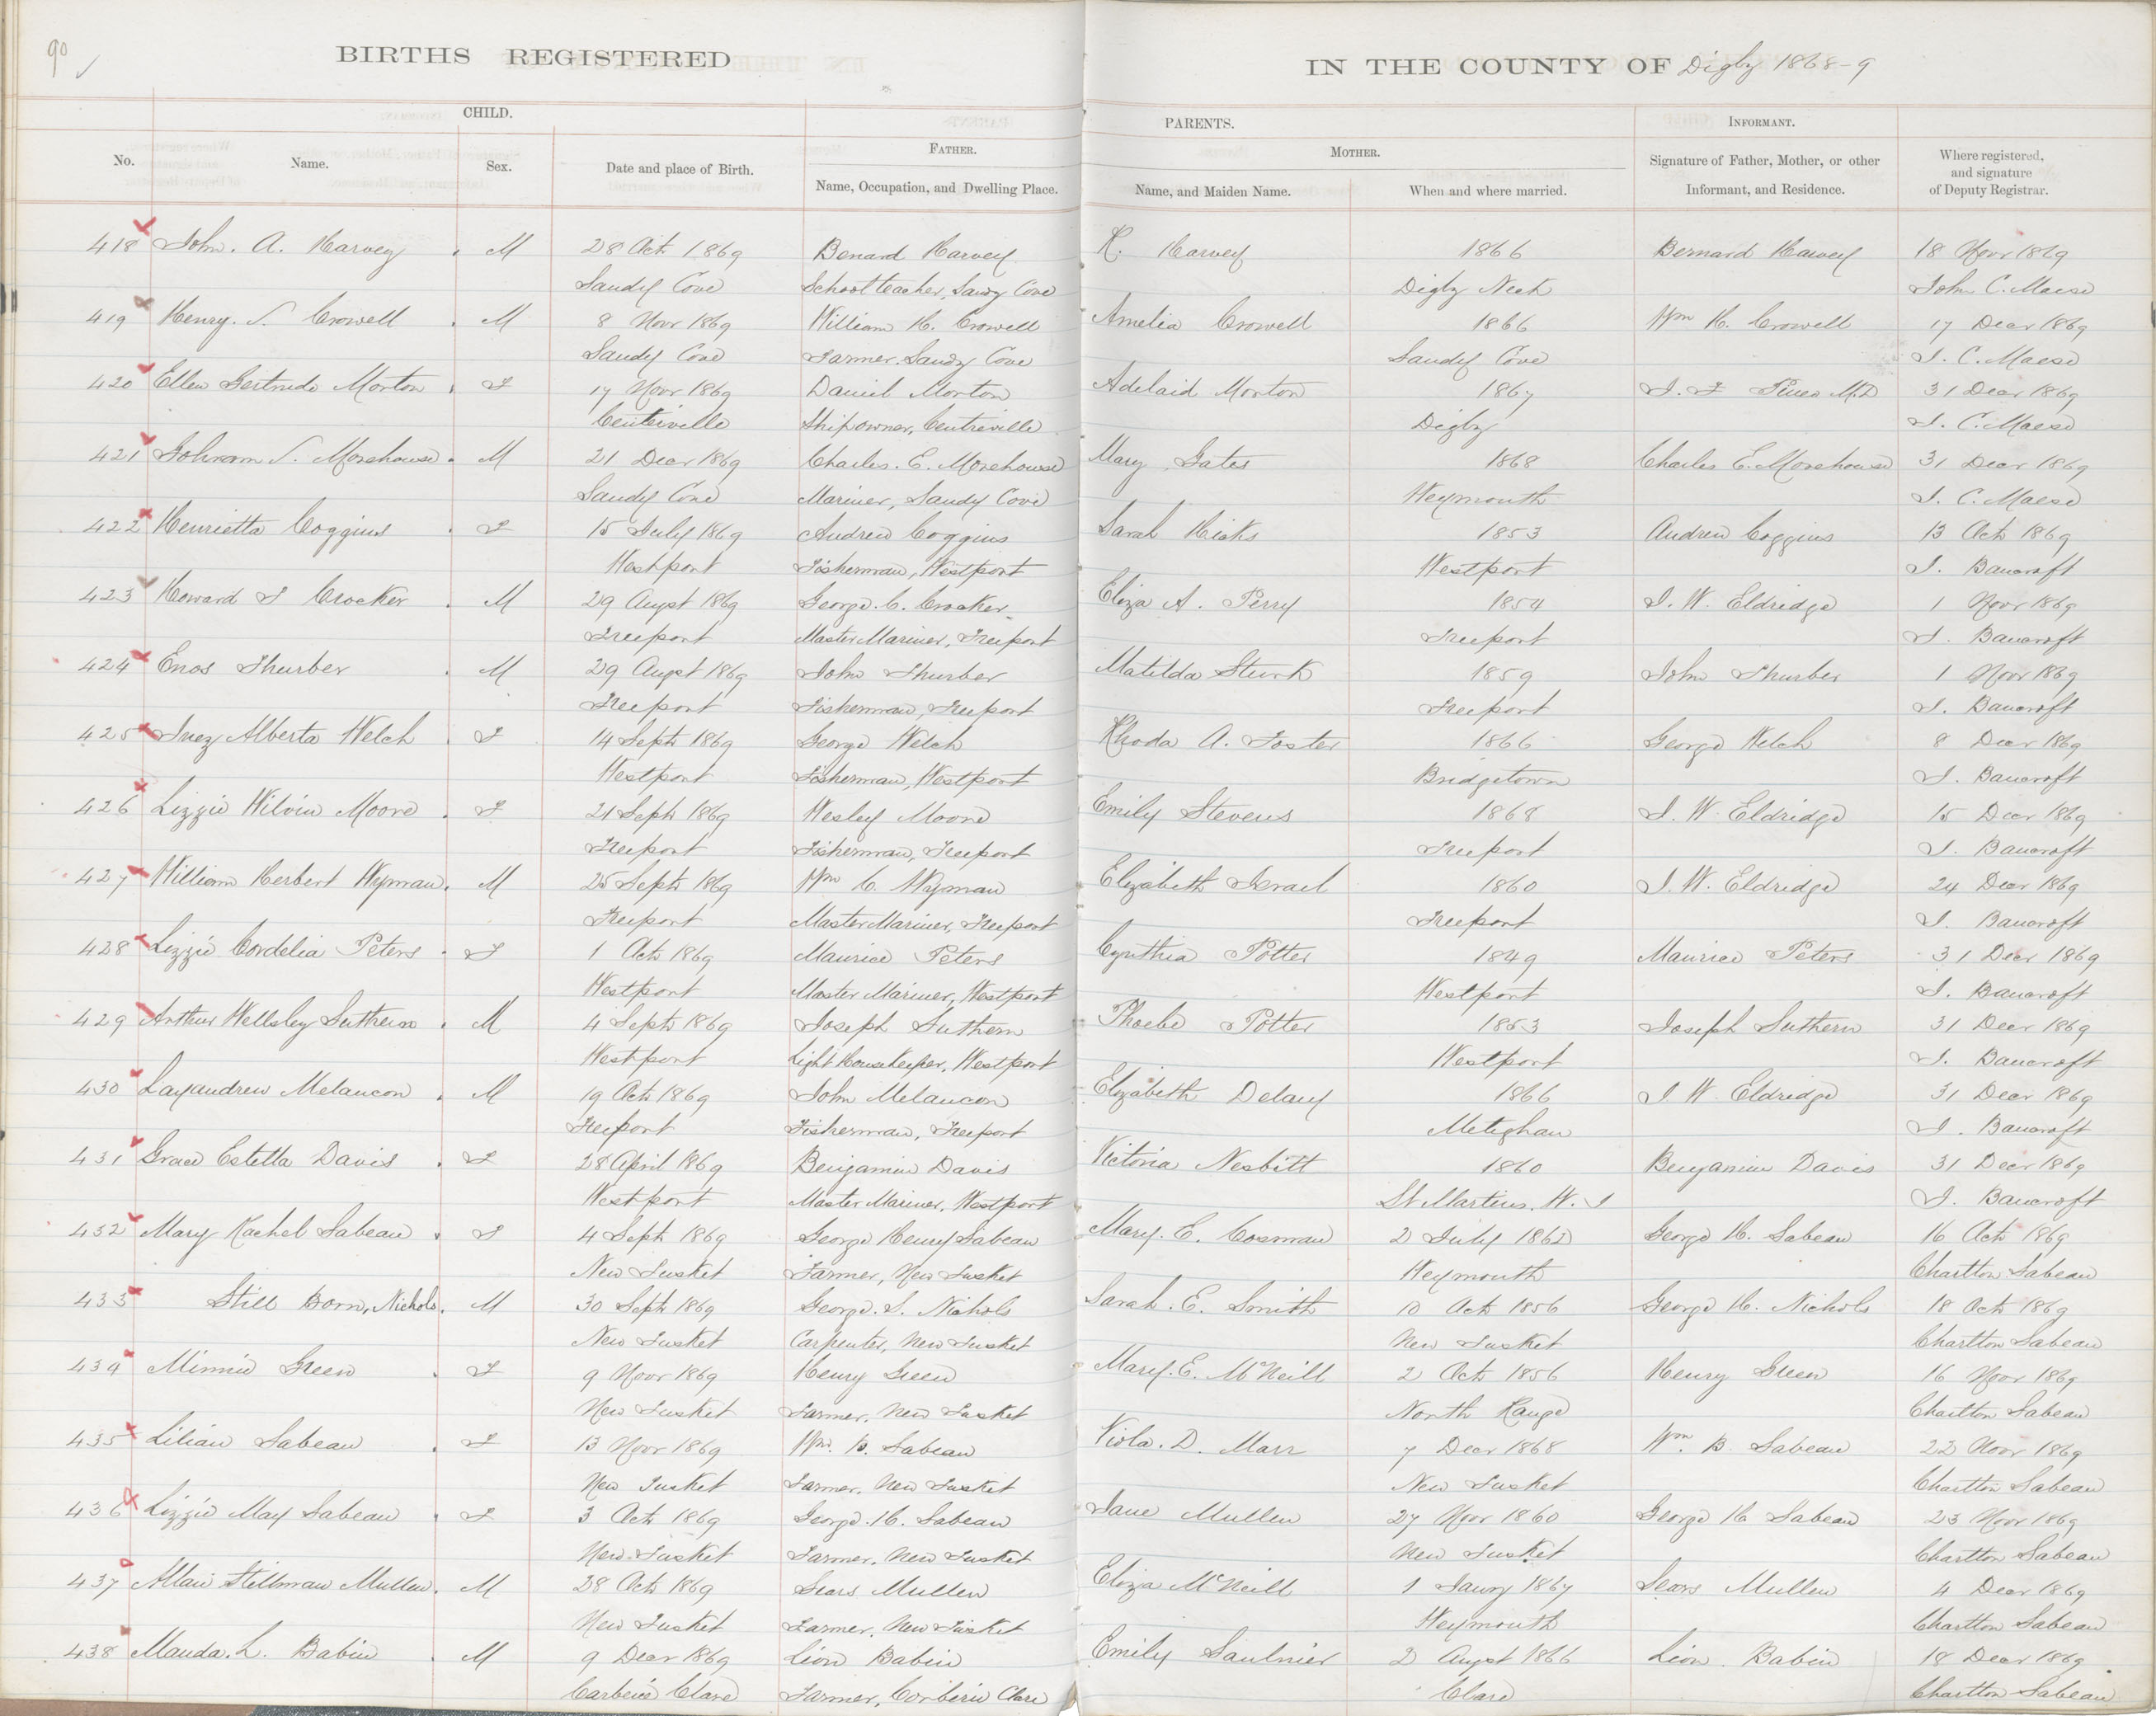 90
BIRTHS REGISTERED IN THE COUNTY OF Digby 1868-9
CHILD. PARENTS. INFORMANT.
No. Name. Sex. Date and place of Birth. FATHER. Name, Occupation, and Dwelling Place. MOTHER. Name, and Maiden Name. When and where married. Signature of Father, Mother, or other Informant, and Residence. Where registered, and signature of Deputy Registrar.
418 John. A. Harvey M 28 Oct 1869 Benard Harvey K. Harvey 1866 Bernard Harvey 18 Novr 1869
Sandy Cove School teacher, Sandy Cove Digby Neck John C. Morse
419 Henry. S. Crowell M 8 Novr 1869 William H. Crowell Amelia Crowell 1866 Wm H. Crowell 17 Decr 1869
Sandy Cove Farmer. Sandy Cove Sandy Cove J. C. Morse
420 Ellen Gertrude Morton F 17 Novr 1869 Daniel Morton Adelaid Morton 1867 J. F M.D 31 Decr 1869
Centreville Ship owner, Centreville Digby J. C. Morse
421 Johnson S. Morehouse M 21 Decr 1869 Charles. E. Morehouse Mary Gates 1868 Charles E. Morehouse 31 Decr 1869
Sandy Cove Mariner, Sandy Cove Weymouth J. C. Morse
422 Henrietta Coggins F 15 July 1869 Andrew Coggins Sarah Hicks 1853 Andrew Coggins 13 Oct 1869
Westport Fisherman, Westport Westport J. Bancroft
423 Howard S Crocker M 29 Augst 1869 George. C. Crocker Eliza A. Perry 1854 J. W. Eldridge 1 Novr 1869
Freeport Master Mariner, Freeport Freeport J. Bancroft
424 Enos Thurber M 29 Augst 1869 John Thurber Matilda Sturk 1859 John Thurber 1 Novr 1869
Freeport Fisherman, Freeport Freeport J. Bancroft
425 Inez Alberta Welch F 14 Sept 1869 George Welch Rhoda A. Foster 1866 George Welch 8 Decr 1869
Westport Fisherman, Westport Bridgetown J. Bancroft
426 Lizzie Wilvin Moore F 21 Sept 1869 Wesley Moore Emily Stevens 1868 J. W Eldridge 15 Decr 1869
Freeport Fisherman, Freeport Freeport J. Bancroft
427 William Herbert Wyman M 25 Sept 1869 Wm C. Wyman Elizabeth Israel 1860 J. W. Eldridge 24 Decr 1869
Freeport Master Mariner, Freeport Freeport J. Bancroft
428 Lizzie Cordelia Peters F 1 Oct 1869 Maurice Peters Cynthia Potter 1849 Maurice Peters 31 Decr 1869
Westport Master Mariner, Westport Westport J. Bancroft
429 Arthur Wellsley Suthern M 4 Sept 1869 Joseph Suthern Phoebe Potter 1853 Joseph Suthern 31 Decr 1869
Westport Light Housekeeper, Westport Westport J. Bancroft
430 Layandrew Melancon M 19 Oct 1869 John Melancon Elizabeth Delany 1866 J. W Eldridge 31 Decr 1869
Freeport Fisherman, Freeport Meteghan J. Bancroft
431 Grace Estella Davis F 28 April 1869 Benjamin Davis Victoria Nesbitt 1860 Benjamin Davis 31 Decr 1869
Westport Master Mariner, Westport St Martins. W. I J. Bancroft
432 Mary Rachel Sabean F 4 Sept 1869 George Henry Sabean Mary. E. Cosman 2 July 1862 George H. Sabean 16 Oct 1869
New Tusket Farmer, New Tusket Weymouth Charlton Sabean
433 Still Born, Nichols. M 30 Sept 1869 George. S. Nichols Sarah. E. Smith 10 Oct 1856 George H. Nichols 18 Oct 1869
New Tusket Carpenter, New Tusket New Tusket Charlton Sabean
434 Minnie Green F 9 Novr 1869 Henry Green Mary. E. McNeill 2 Oct 1856 Henry Green 16 Novr 1869
New Tusket Farmer, New Tusket North Range Charlton Sabean
435 Lilian Sabean F 13 Novr 1869 Wm. B. Sabean Viola. D. Marr 7 Decr 1868 Wm B Sabean 22 Novr 1869
New Tusket Farmer, New Tusket New Tusket Charlton Sabean
436 Lizzie May Sabean F 3 Oct 1869 George. H. Sabean Jane Mullen 27 Novr 1860 George H Sabean 23 Novr 1869
New Tusket Farmer, New Tusket New Tusket Charlton Sabean
437 Allan Stillman Mullen. M 28 Oct 1869 Sears Mullen Eliza McNeill 1 Jany 1867 Sears Mullen 4 Decr 1869
New Tusket Farmer, New Tusket Weymouth Charlton Sabean
438 Manda. L. Babin M 9 Decr 1869 Lion Babin Emily Saulnier 2 Augst 1866 Lion Babin 18 Decr 1869
Carberie Clare Farmer, Corberie Clare Clare Charlton Sabean